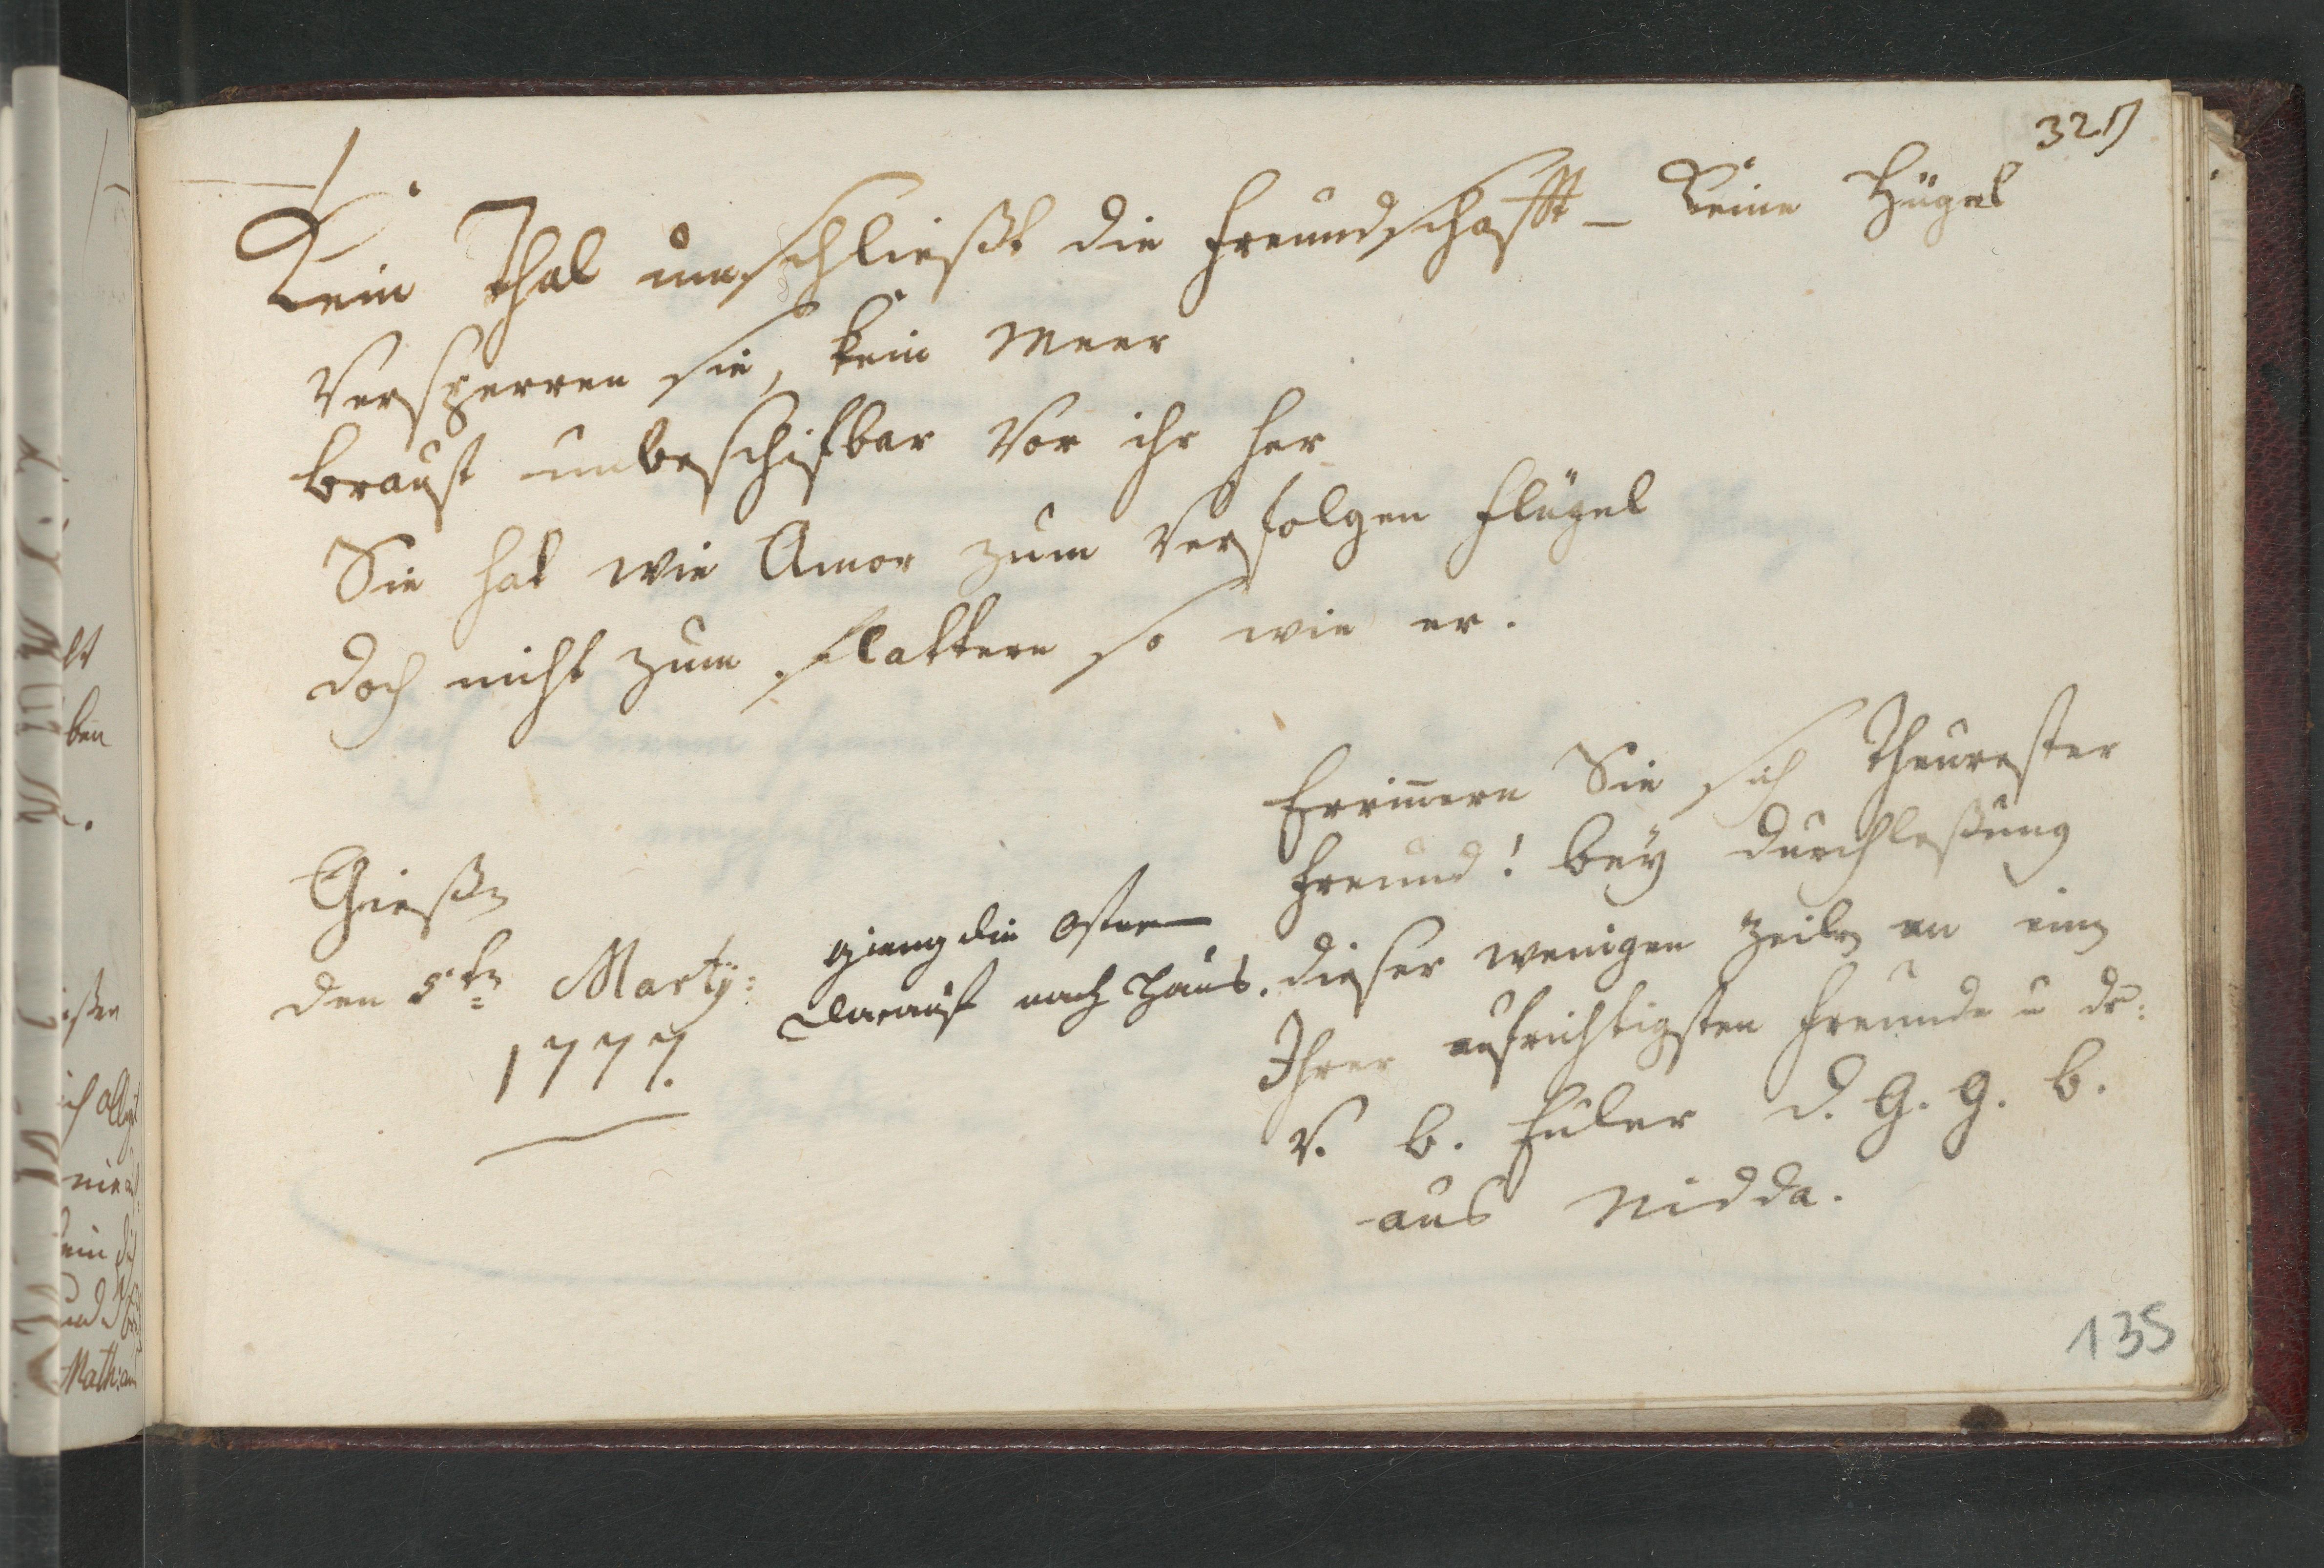 321)
Kein Thal umschließt die Freundschafft – Keine Hügel
Versperren sie, kein Meer
braust unbeschifbar Vor ihr her
Sie hat wie Amor zum Verfolgen Flügel
doch nicht zum flattern so wie er.
Gießen
den 5ten Martÿ:
1777.
gieng die Ostern
darauf nach Haus.
Erinnern Sie sich Theurester
Freund! beÿ durchleßung
dieser wenigen Zeilen an einen
Ihrer aufrichtigsten Freunde u dr:
V. B. Euler d. G. G. B.
aus Nidda.
135